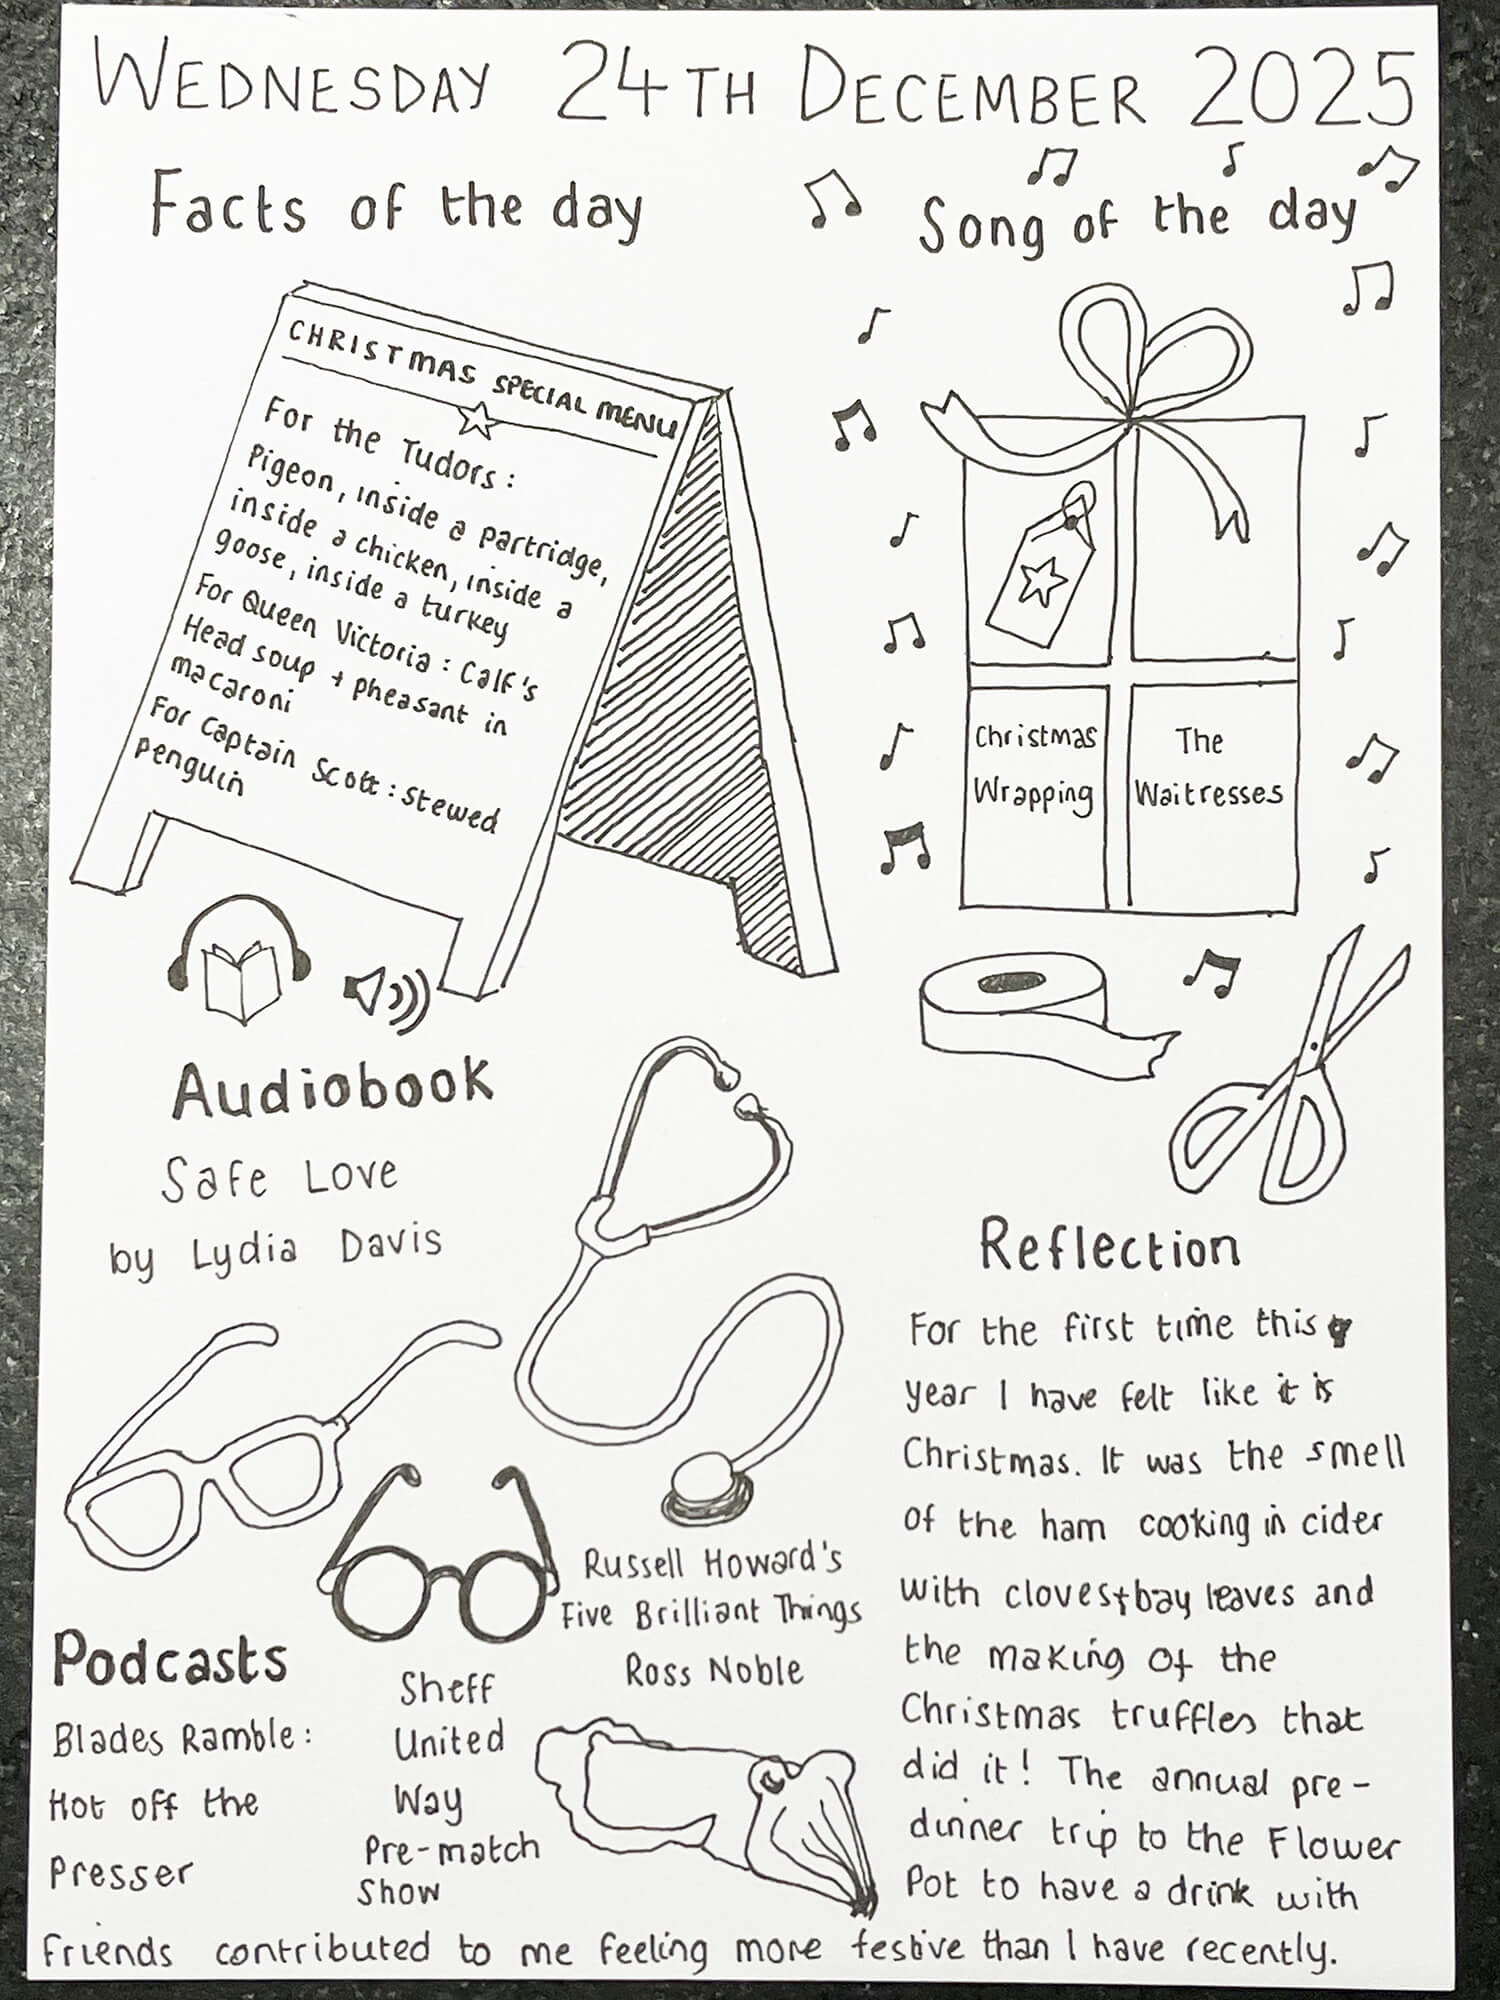 WEDNESDAY 24TH DECEMBER 2025
Facts of the day
CHRISTMAS SPECIAL MENU
For the Tudors:
Pigeon, inside a partridge,
inside a chicken, inside a
goose, inside a turkey
For Queen Victoria: Calf's
Head soup + pheasant in
macaroni
For Captain Scott: stewed
penguin
Song of the day
Christmas
Wrapping
The
Waitresses
Audiobook
Safe Love
by Lydia Davis
Podcasts
Blades Ramble:
Hot off the
Presser
Sheff
United
Way
Pre-match
Show
Russell Howard's
Five Brilliant Things
Ross Noble
Reflection
For the first time this
year I have felt like it is
Christmas. It was the smell
of the ham cooking in cider
with cloves+bay leaves and
the making of the
Christmas truffles that
did it! The annual pre-
dinner trip to the Flower
Pot to have a drink with
friends contributed to me feeling more festive than I have recently.